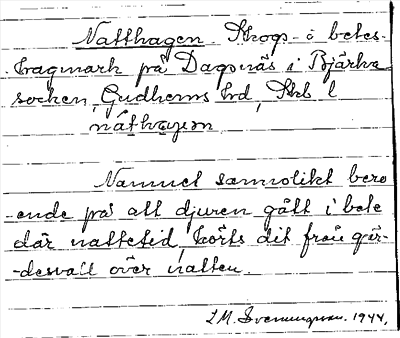 Natthagen. Skogs- o betes-
hagmark på Dagsnäs i Bjärka
socken, Gudhems hd, Skb. l
nåthagen
Namnet sannolikt bero
ende på att djuren gått i bete
där nattetid, körts dit från går-
desvall över natten.
1944.